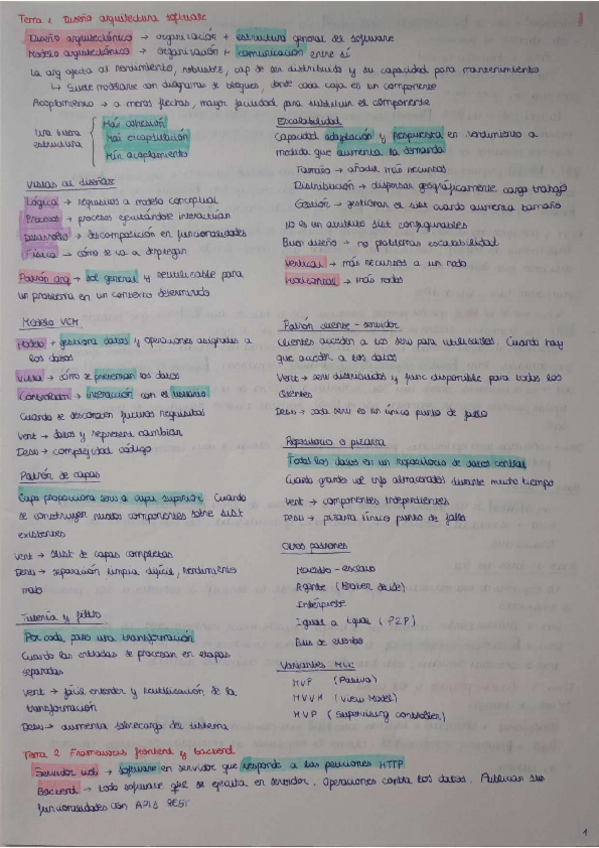 Tema 1 Diseño arquitectura software
Diseño arquitectónico → organización + estructura general del software
Modelo arquitectónico → organización + comunicación entre sí
La arq afecta al rendimiento, robustez, cap de ser distribuido y su capacidad para mantenimiento
↳ Suele modelarse con diagramas de bloques, donde cada caja es un componente
Acoplamiento → a menos flechas, mayor facilidad para sustituir el componente
Una buena estructura
Max cohesión
Max encapsulación
Min acoplamiento
Vistas al diseñar
Lógica → requisitos a modelo conceptual
Procesos → procesos ejecutándose interactúan
Desarrollo → descomposición en funcionalidades
Física → cómo se va a desplegar
Patrón arq → sol general y reutilizable para
un problema en un contexto determinado
Modelo VCM
Modelo → gestiona datos y operaciones asignadas a
los datos
Vista → cómo se presentan los datos
Controlador → interacción con el usuario
Cuando se desconocen futuros requisitos
Vent → datos y represent cambian
Desv → complejidad código
Patrón de capas
Capa proporciona servs a capa superior. Cuando
se construyen nuevos componentes sobre sist
existentes
Vent → sust de capas completas
Desv → separación limpia difícil, rendimiento
malo
Tubería y filtro
Por cada paso una transformación
Cuando las entradas se procesan en etapas
separadas
Vent → fácil entender y reutilización de la
transformación
Desv → aumenta sobrecarga del sistema
Escalabilidad
Capacidad adaptación y respuesta en rendimiento a
medida que aumenta la demanda
Tamaño → añadir más recursos
Distribución → dispersar geográficamente carga trabajo
Gestión → gestionar el sist cuando aumenta tamaño
No es un atributo sist configurables
Buen diseño → no problemas escalabilidad
Vertical → más recursos a un nodo
Horizontal → más nodos
Patrón cliente - servidor
Clientes acceden a los serv para utilizarlos. Cuando hay
que acceder a los datos
Vent → serv distribuidos y func disponible para todos los
clientes
Desv → cada serv es un único punto de fallo
Repositorio o pizarra
Todos los datos en un repositorio de datos central
Cuando grandes vol info almacenados durante mucho tiempo
Vent → componentes independientes
Desv → pizarra único punto de fallo
Otros patrones
Maestro - esclavo
Agente (Broker)
Intérprete
Igual a igual (P2P)
Bus de eventos
Variantes MVC
MVP (Pasiva)
MVVM (View Model)
MVP (Supervising controller)
Tema 2 Frameworks frontend y backend
Servidor web → software en servidor que responde a las peticiones HTTP
Backend → todo software que se ejecuta en servidor. Operaciones contra los datos. Publican sus
funcionalidades con APIs REST
1